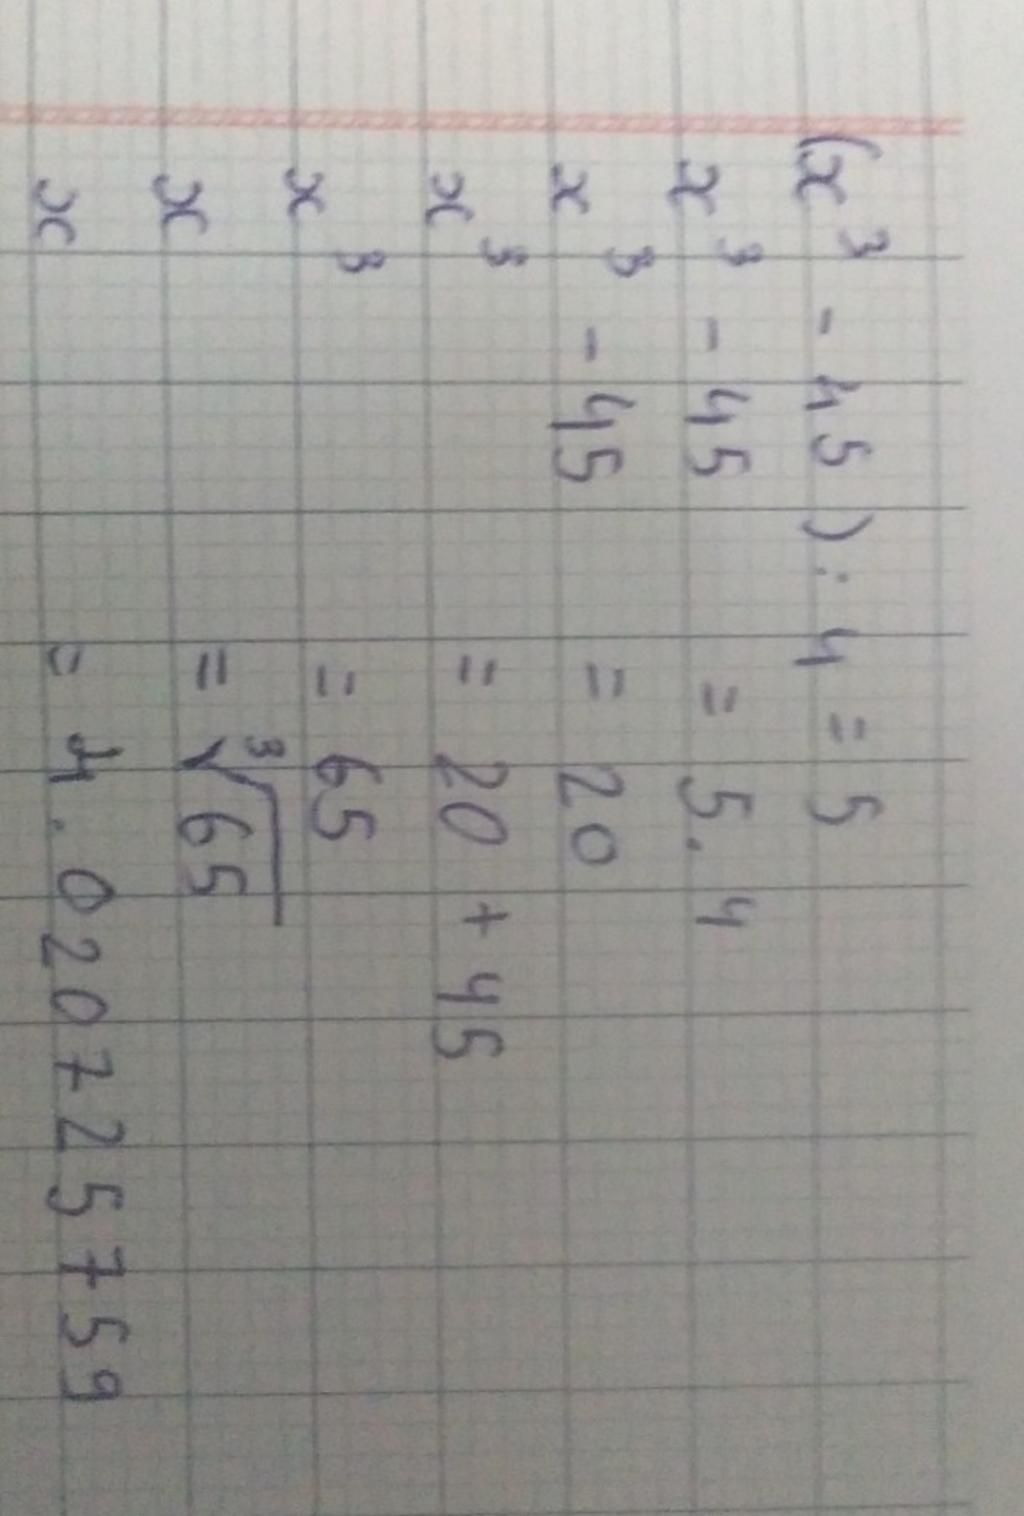 (x³ - 45) : 4 = 5
x³ - 45 = 5. 4
x³ - 45 = 20
x³ = 20 + 45
x³ = 65
x = ∛65
x = 4.020725759